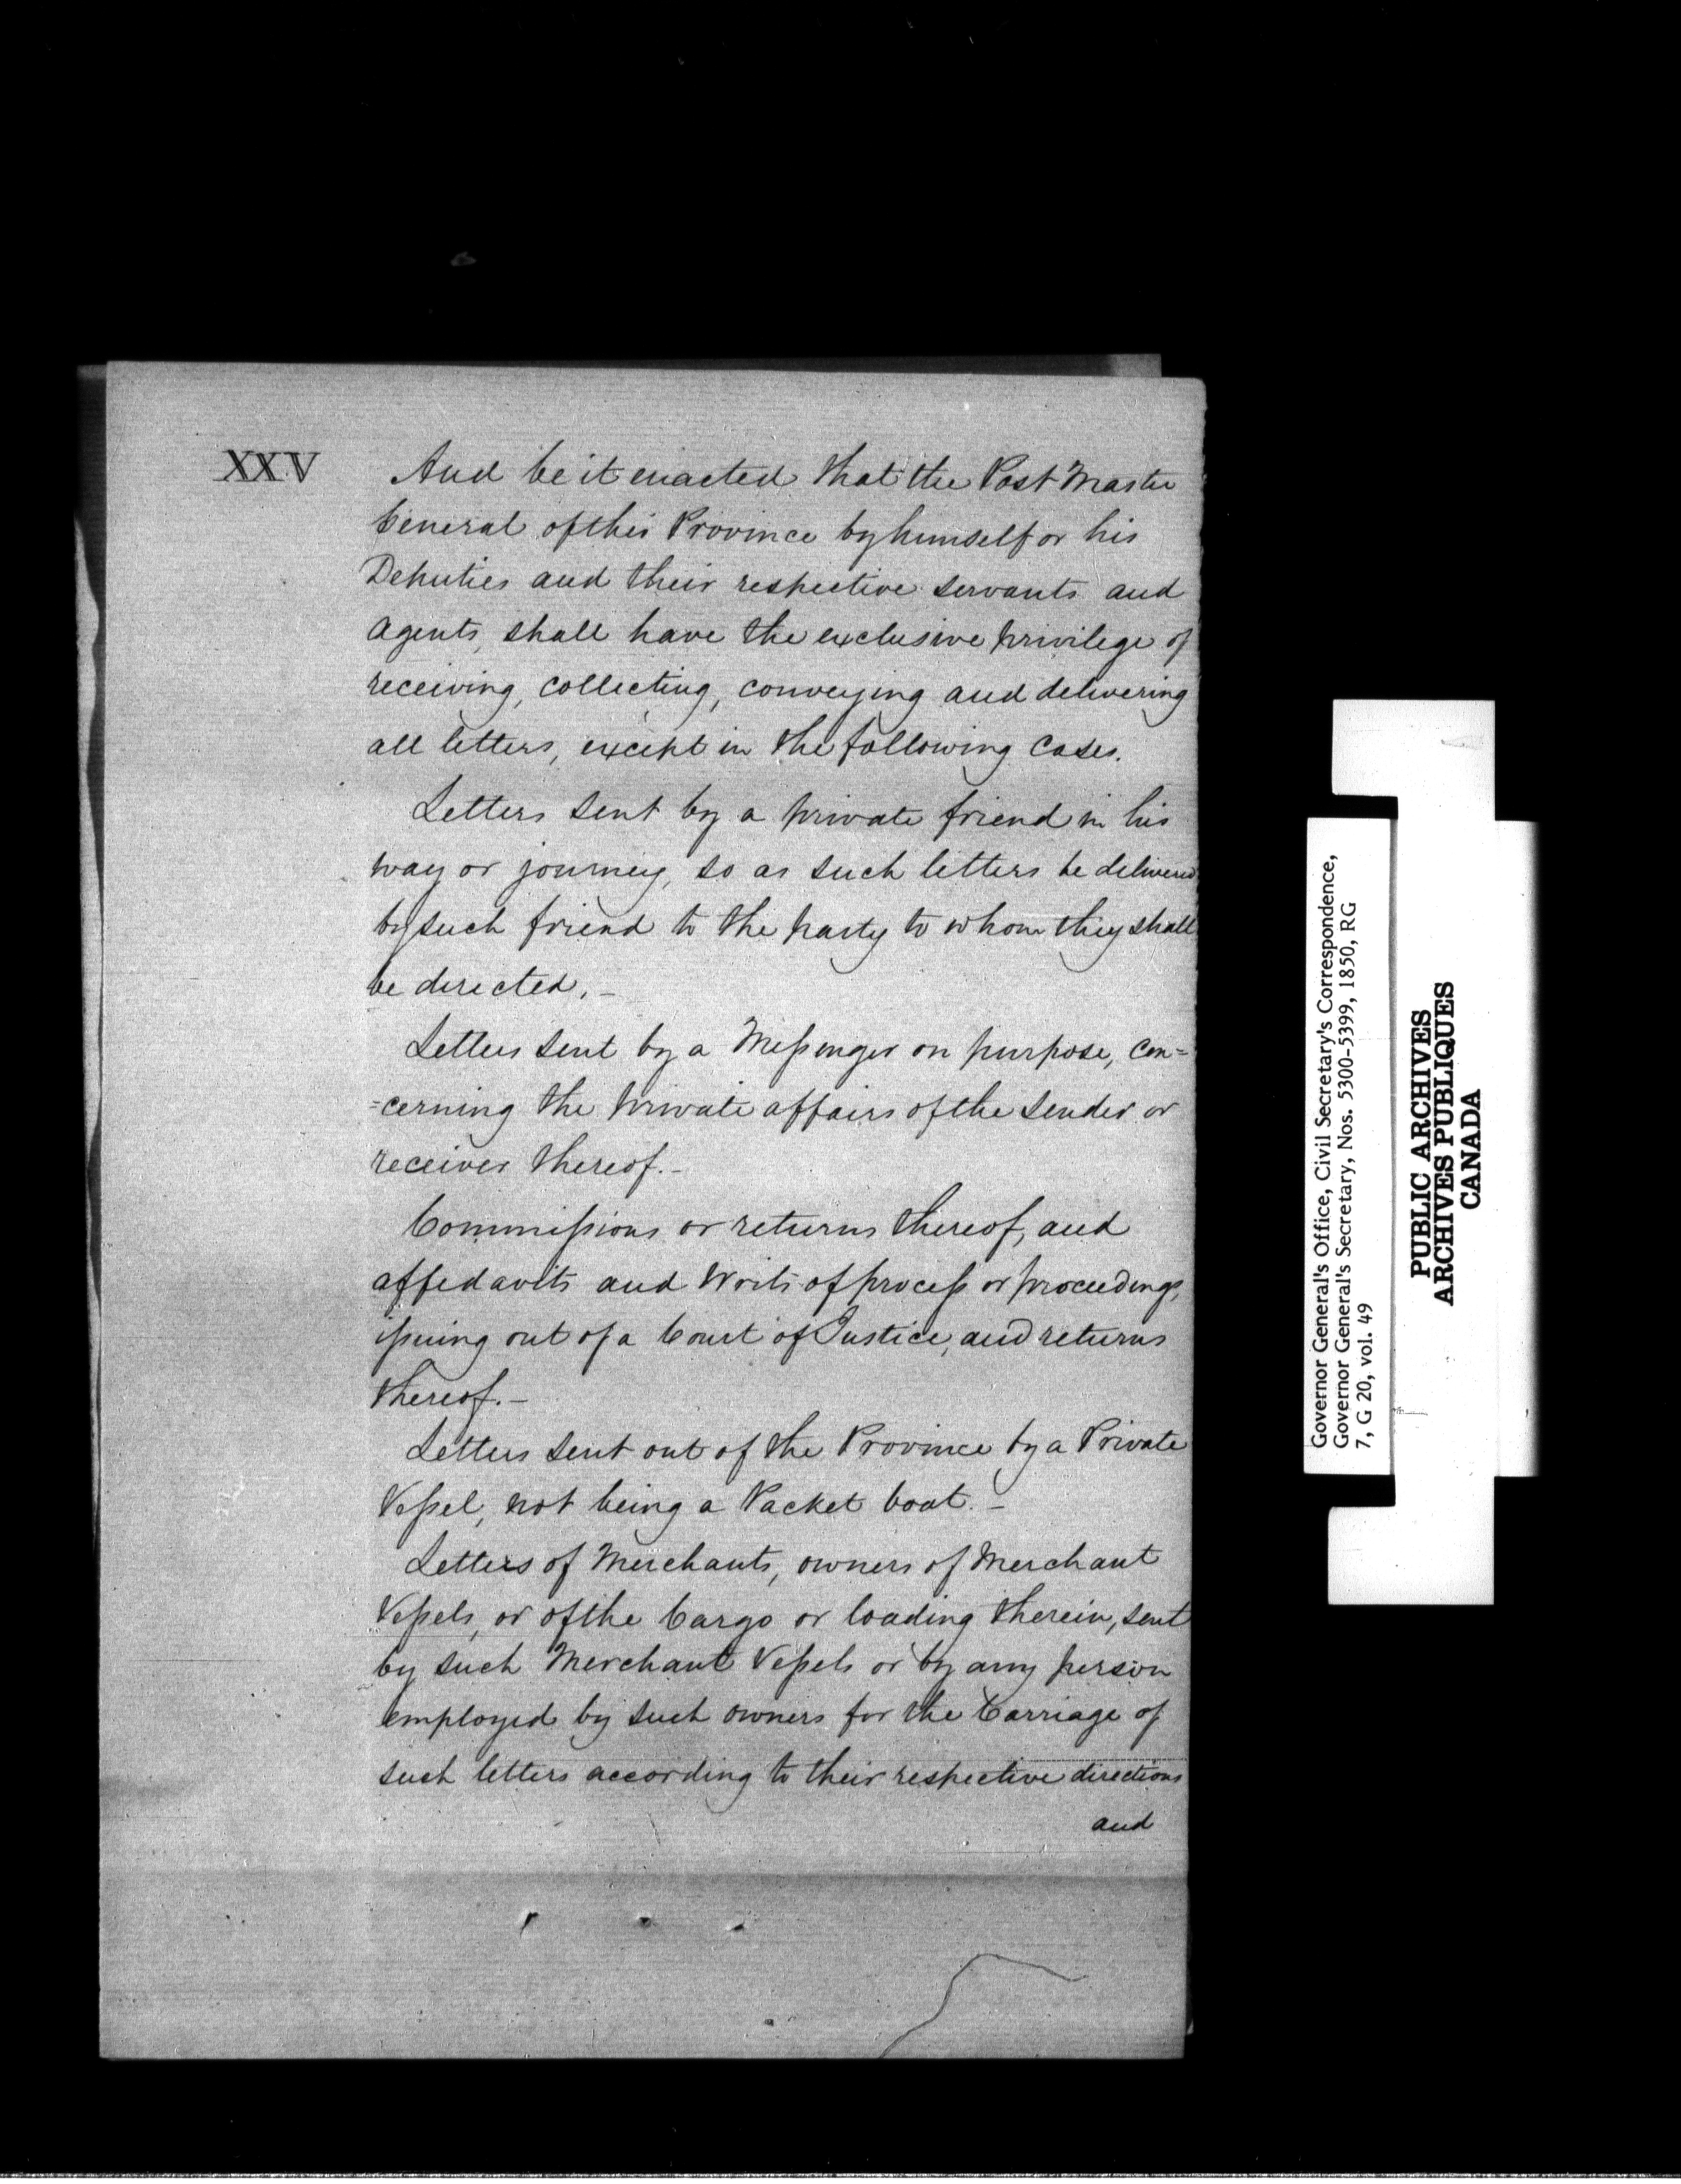 XXV And be it enacted that the Post Master
General of this Province by himself or his
Deputies and their respective servants and
Agents, shall have the exclusive privilege of
receiving, collecting, conveying and delivering
all letters, except in the following Cases.
Letters sent by a private friend in his
way or journey, so as such letters be delivered
by such friend to the party to whom they shall
be directed. –
Letters sent by a Messenger on purpose, con=
=cerning the private affairs of the Sender or
receiver thereof. –
Commissions or returns thereof, and
affidavits and Writs of process or proceedings,
issuing out of a Court of Justice, and returns
thereof. –
Letters sent out of the Province by a Private
Vessel, not being a Packet boat. –
Letters of Merchants, owners of Merchant
Vessels, or of the Cargo or loading therein, sent
by such Merchant Vessels or by any person
employed by such owners for the Carriage of
such letters according to their respective directions
and
Governor General's Office, Civil Secretary's Correspondence,
Governor General's Secretary, Nos. 5300-5399, 1850, RG
7, G 20, vol. 49
PUBLIC ARCHIVES
ARCHIVES PUBLIQUES
CANADA